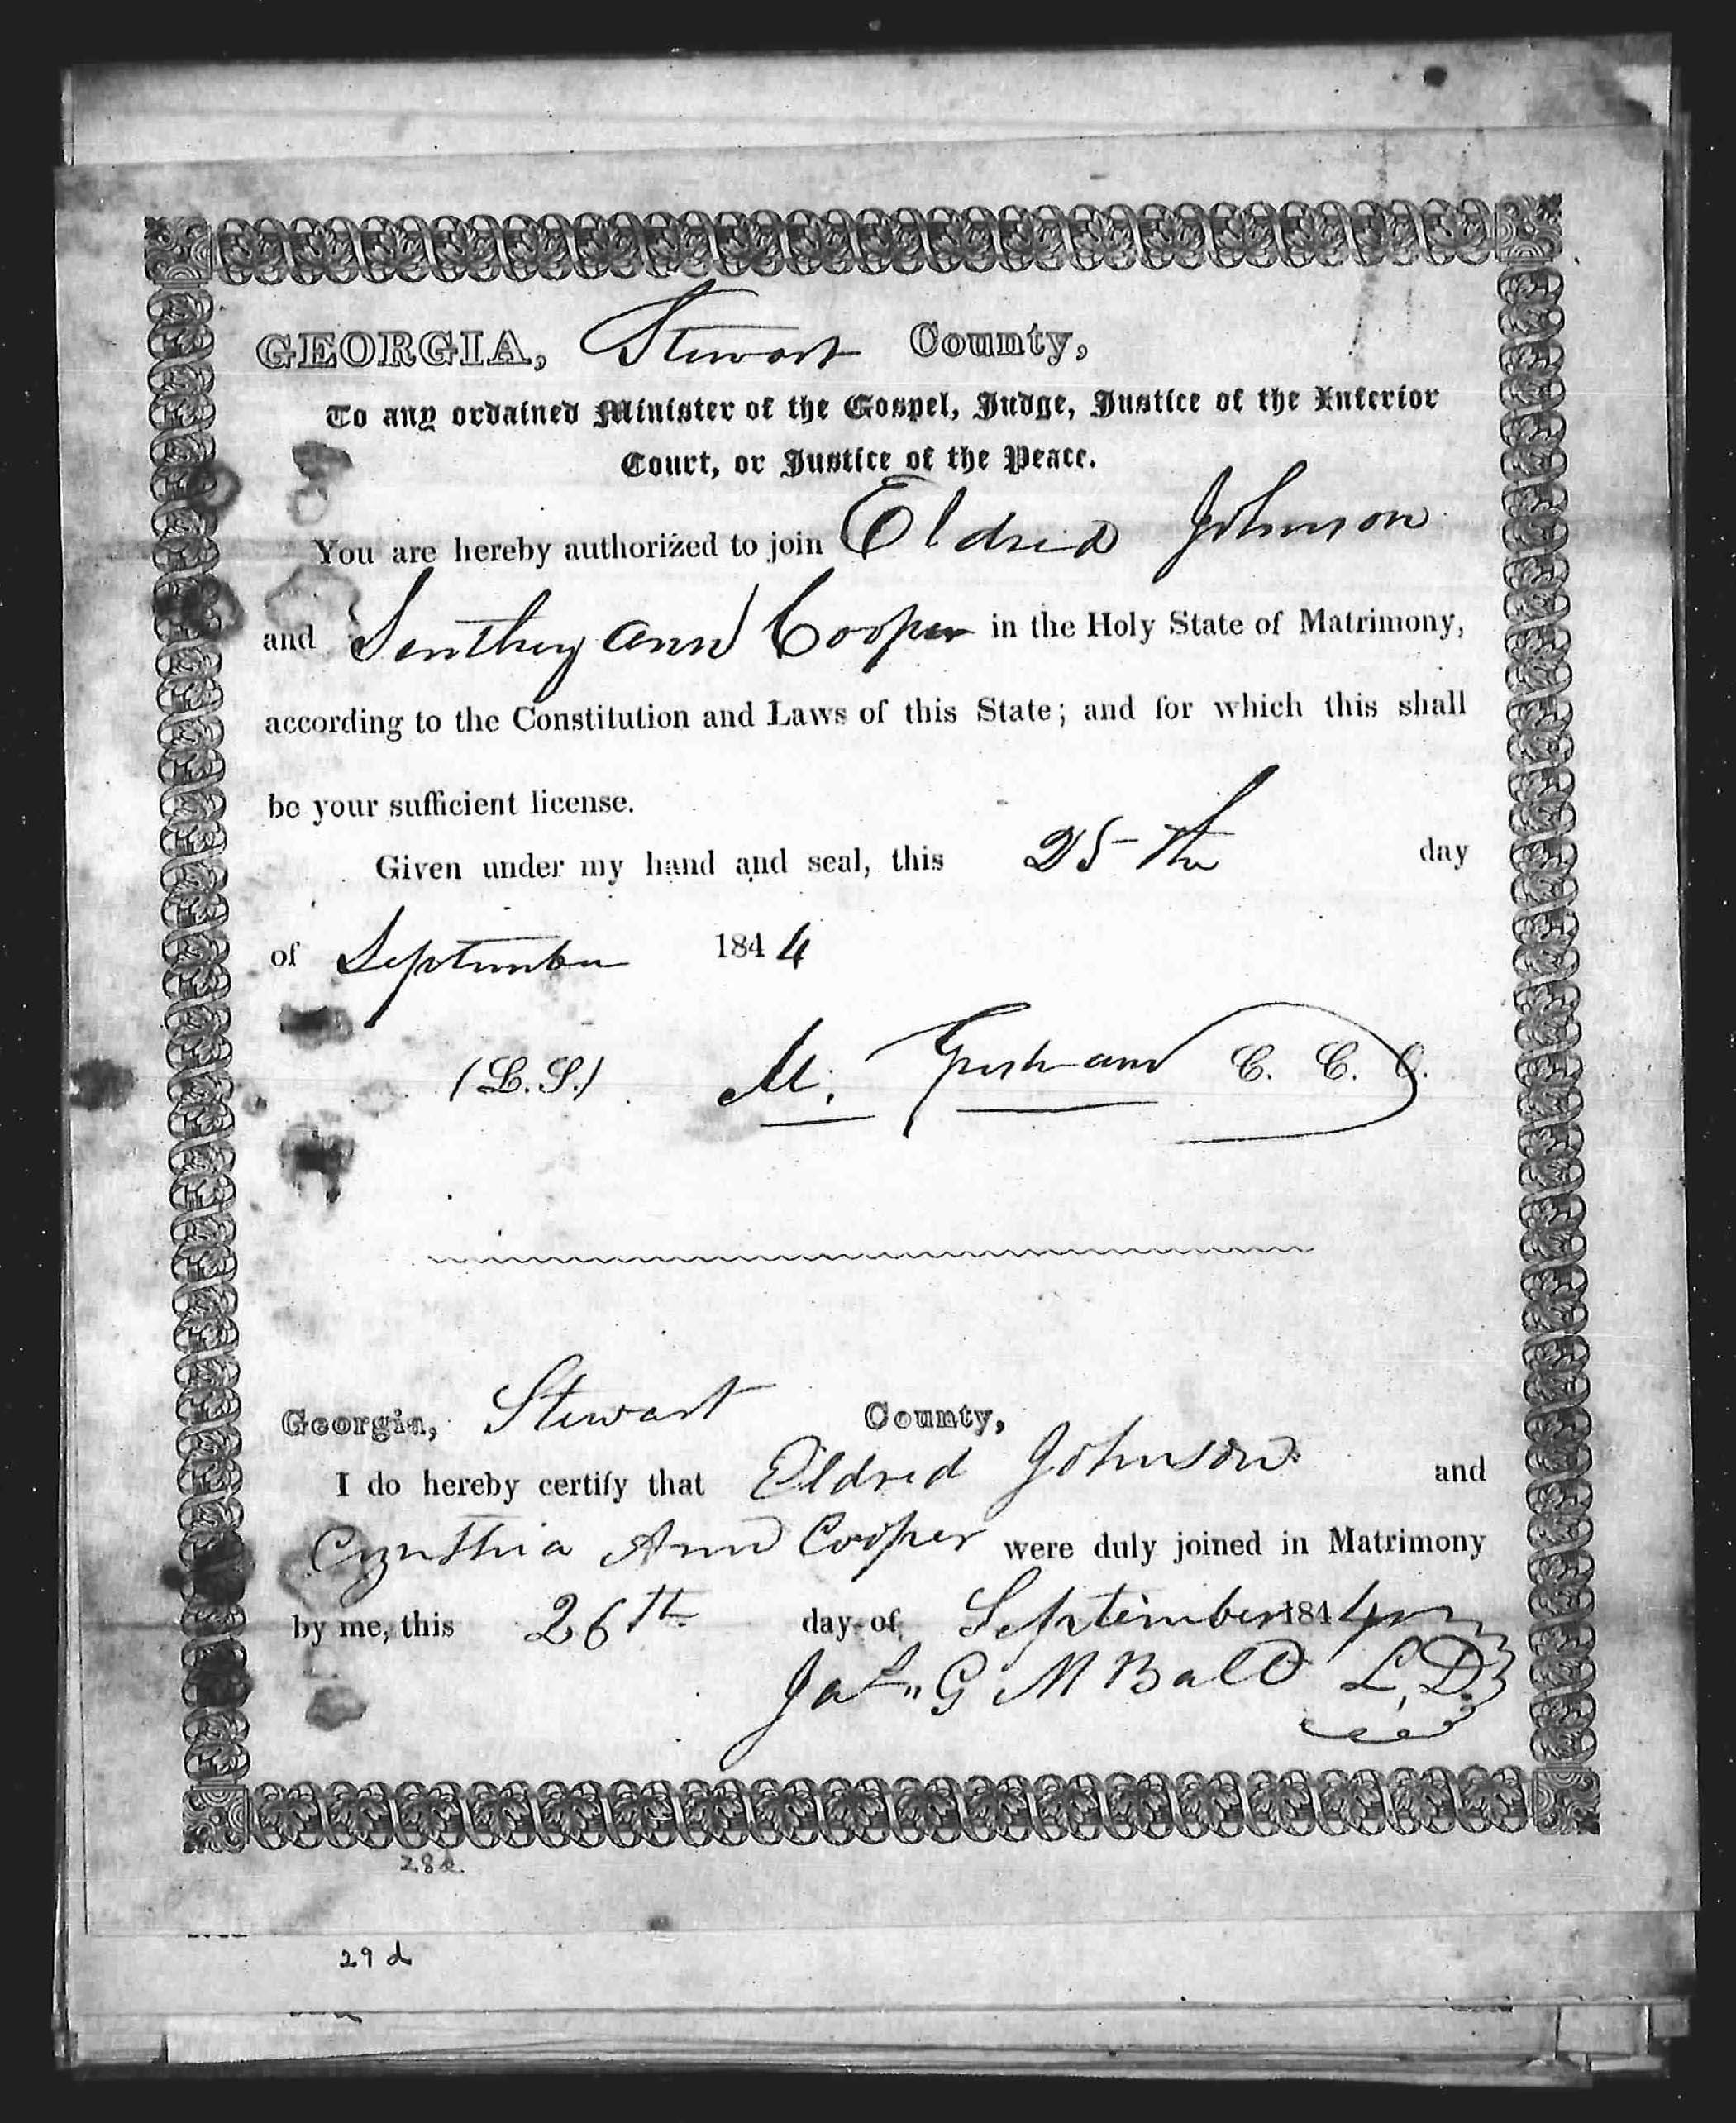 GEORGIA, Stewart County,
To any ordained Minister of the Gospel, Judge, Justice of the Inferior
Court, or Justice of the Peace.
You are hereby authorized to join Eldred Johnson
and Senthey ann Cooper in the Holy State of Matrimony,
according to the Constitution and Laws of this State; and for which this shall
be your sufficient license.
Given under my hand and seal, this 25th day
of September 1844
(L.S.) M. Gresham C. C. O.
Georgia, Stewart County,
I do hereby certify that Eldred Johnson and
Cynthia Ann Cooper were duly joined in Matrimony
by me, this 26th day of September 1844
Jas. G M Ball L, D,
28d
29d